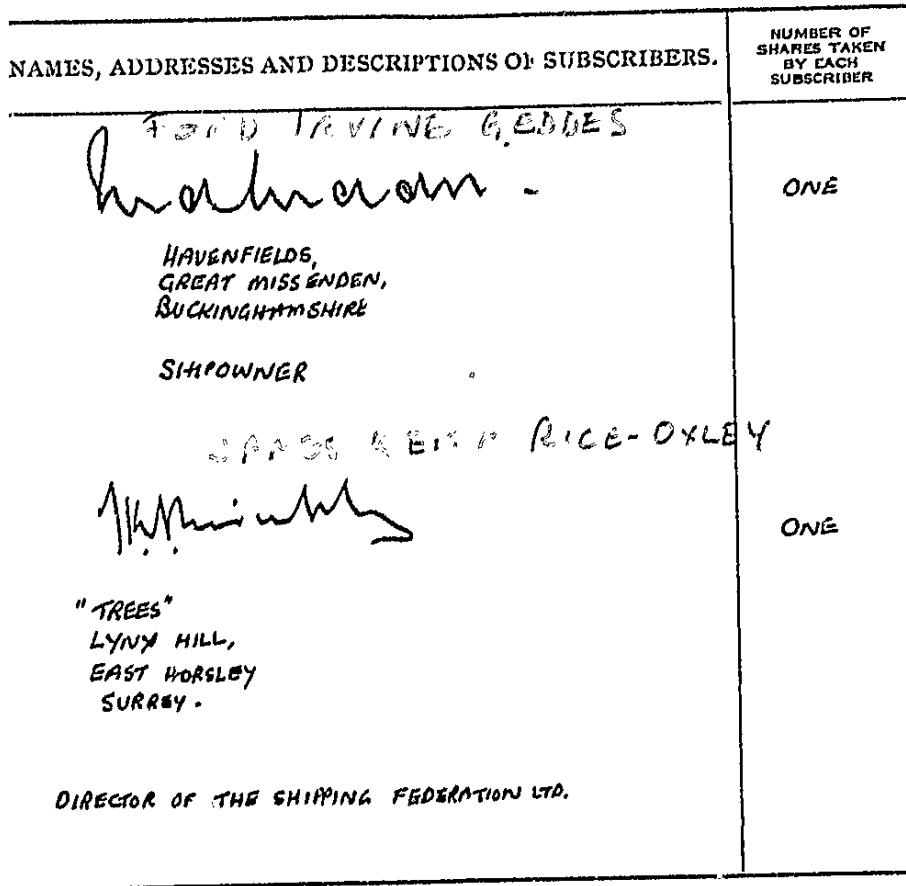 NAMES, ADDRESSES AND DESCRIPTIONS OF SUBSCRIBERS.
NUMBER OF
SHARES TAKEN
BY EACH
SUBSCRIBER
FORD IRVINE GEDDES
ONE
HAVENFIELDS,
GREAT MISSENDEN,
BUCKINGHAMSHIRE
SHIPOWNER
JAMES KEITH RICE-OXLEY
ONE
"TREES"
LYNX HILL,
EAST HORSLEY
SURREY.
DIRECTOR OF THE SHIPPING FEDERATION LTD.